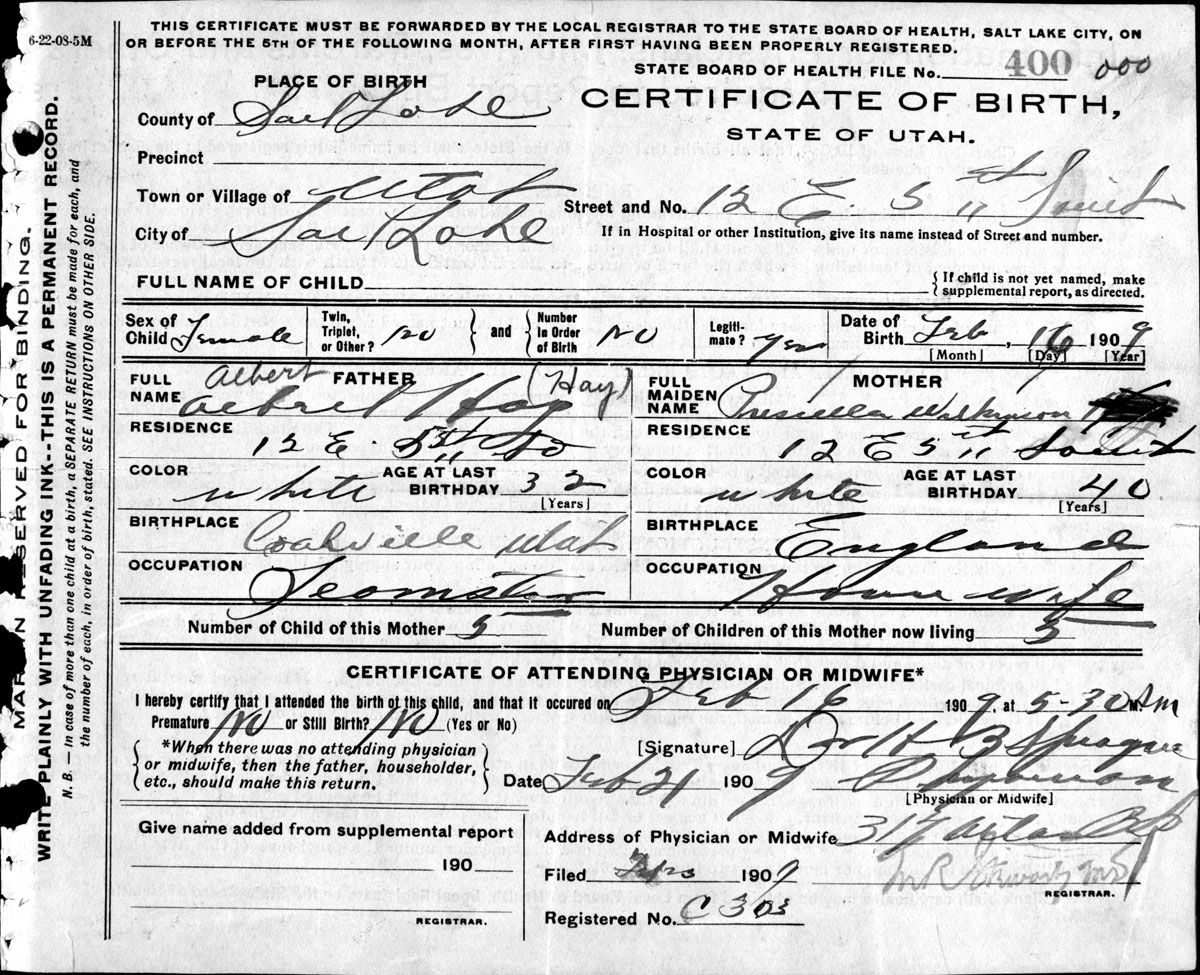 6-22-08-5M
THIS CERTIFICATE MUST BE FORWARDED BY THE LOCAL REGISTRAR TO THE STATE BOARD OF HEALTH, SALT LAKE CITY, ON
OR BEFORE THE 5TH OF THE FOLLOWING MONTH, AFTER FIRST HAVING BEEN PROPERLY REGISTERED.
STATE BOARD OF HEALTH FILE No. 400 000
PLACE OF BIRTH
CERTIFICATE OF BIRTH,
STATE OF UTAH.
County of Salt Lake
Precinct
Town or Village of Utah
Street and No. 12 E. 5 South
City of Salt Lake
If in Hospital or other Institution, give its name instead of Street and number.
FULL NAME OF CHILD
{If child is not yet named, make
supplemental report, as directed.
Sex of Child Female
Twin, Triplet, or Other? No } and { Number in Order of Birth No
Legiti-mate? Yes
Date of Birth Feb, 16 1909
[Month] [Day] [Year]
FULL NAME FATHER Albert Hay (Hay)
FULL MAIDEN NAME MOTHER Priscilla
RESIDENCE 12 E. 5 So
RESIDENCE 12 E 5 South
COLOR white AGE AT LAST BIRTHDAY 32 [Years]
COLOR white AGE AT LAST BIRTHDAY 40 [Years]
BIRTHPLACE Coalville Utah
BIRTHPLACE England
OCCUPATION Teamster
OCCUPATION House wife
Number of Child of this Mother 5
Number of Children of this Mother now living 5
CERTIFICATE OF ATTENDING PHYSICIAN OR MIDWIFE*
I hereby certify that I attended the birth of this child, and that it occured on Feb 16 1909, at 5-30 A M
Premature No or Still Birth? No (Yes or No)
{*When there was no attending physician
or midwife, then the father, householder,
etc., should make this return.}
[Signature] Dr H B Sprague
Date Feb 21 1909 Physician
[Physician or Midwife]
Give name added from supplemental report
190
REGISTRAR.
Address of Physician or Midwife
Filed 1909
REGISTRAR.
Registered No. C 308
MARGIN RESERVED FOR BINDING.
WRITE PLAINLY WITH UNFADING INK--THIS IS A PERMANENT RECORD.
N. B. — In case of more than one child at a birth, a SEPARATE RETURN must be made for each, and
the number of each, in order of birth, stated. SEE INSTRUCTIONS ON OTHER SIDE.